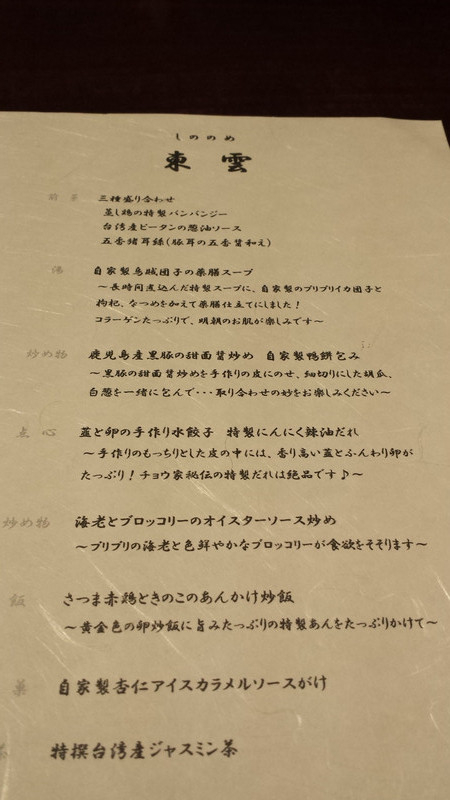 しののめ
東雲
前菜 三種盛り合わせ
蒸し鶏の特製バンバンジー
台湾産ピータンの葱油ソース
五香猪耳絲(豚耳の五香醤和え)
湯 自家製烏賊団子の薬膳スープ
～長時間煮込んだ特製スープに、自家製のプリプリイカ団子と
枸杞、なつめを加えて薬膳仕立てにしました!
コラーゲンたっぷりで、明朝のお肌が楽しみです～
炒め物 鹿児島産黒豚の甜面醤炒め 自家製鴨餅包み
～黒豚の甜面醤炒めを手作りの皮にのせ、細切りにした胡瓜、
白葱を一緒に包んで・・・取り合わせの妙をお楽しみください～
点心 韮と卵の手作り水餃子 特製にんにく辣油だれ
～手作りのもっちりとした皮の中には、香り高い韮とふんわり卵が
たっぷり!チョウ家秘伝の特製だれは絶品です♪～
炒め物 海老とブロッコリーのオイスターソース炒め
～プリプリの海老と色鮮やかなブロッコリーが食欲をそそります～
飯 さつま赤鶏ときのこのあんかけ炒飯
～黄金色の卵炒飯に旨みたっぷりの特製あんをたっぷりかけて～
菓 自家製杏仁アイスカラメルソースがけ
茶 特撰台湾産ジャスミン茶